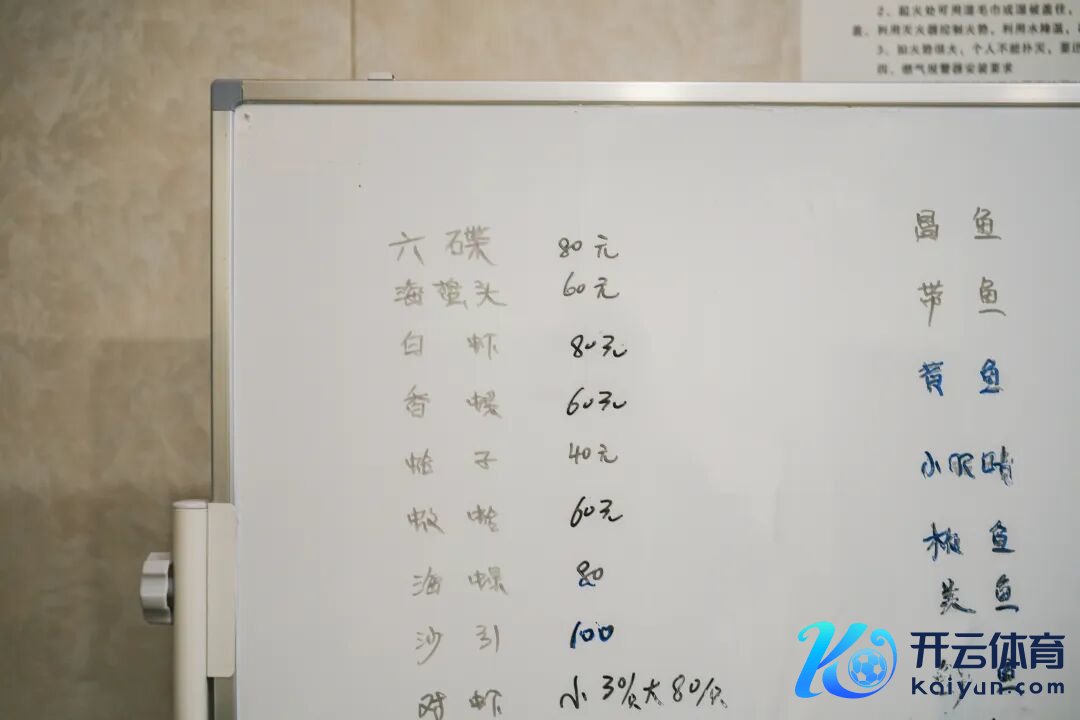 2、起火处可用湿毛巾或湿被盖住，
盖，利用灭火器控制火势，利用水降温，
3、如火势很大，个人不能扑灭，要迅
四、燃气报警器安装要求
六碟 80元
海蜇头 60元
白虾 80元
香螺 60元
蛤子 40元
蚬蛤 60元
海螺 80
沙引 100
对虾 小30/只大80/只
昌鱼
带鱼
黄鱼
小眼睛
鱼
鱼
鱼
开云体育
Kaiyun.com